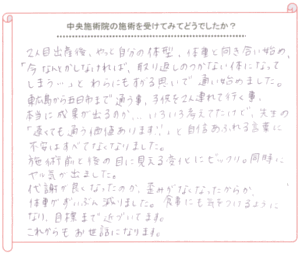 中央施術院の施術を受けてみてどうでしたか？
2人目出産後、やっと自分の体型、体重と向き合い始め、
「今なんとかしなければ、取り返しのつかない体になって
しまう…」とわらにもすがる思いで通い始めました。
東広島から五日市まで通う事、子供を2人連れて行く事、
本当に成果が出るのか… いろいろ考えてたけど、先生の
「遠くても通う価値あります！」と自信あふれる言葉に
不安はすべてなくなりました。
施術前と後の目に見える変化にビックリ。同時に
ヤル気が出ました。
代謝が良くなったのか、歪みがなくなったからか、
体重がずいぶん減りました。食事にも気をつけるように
なり、目標まで近づいてます。
これからもお世話になります。